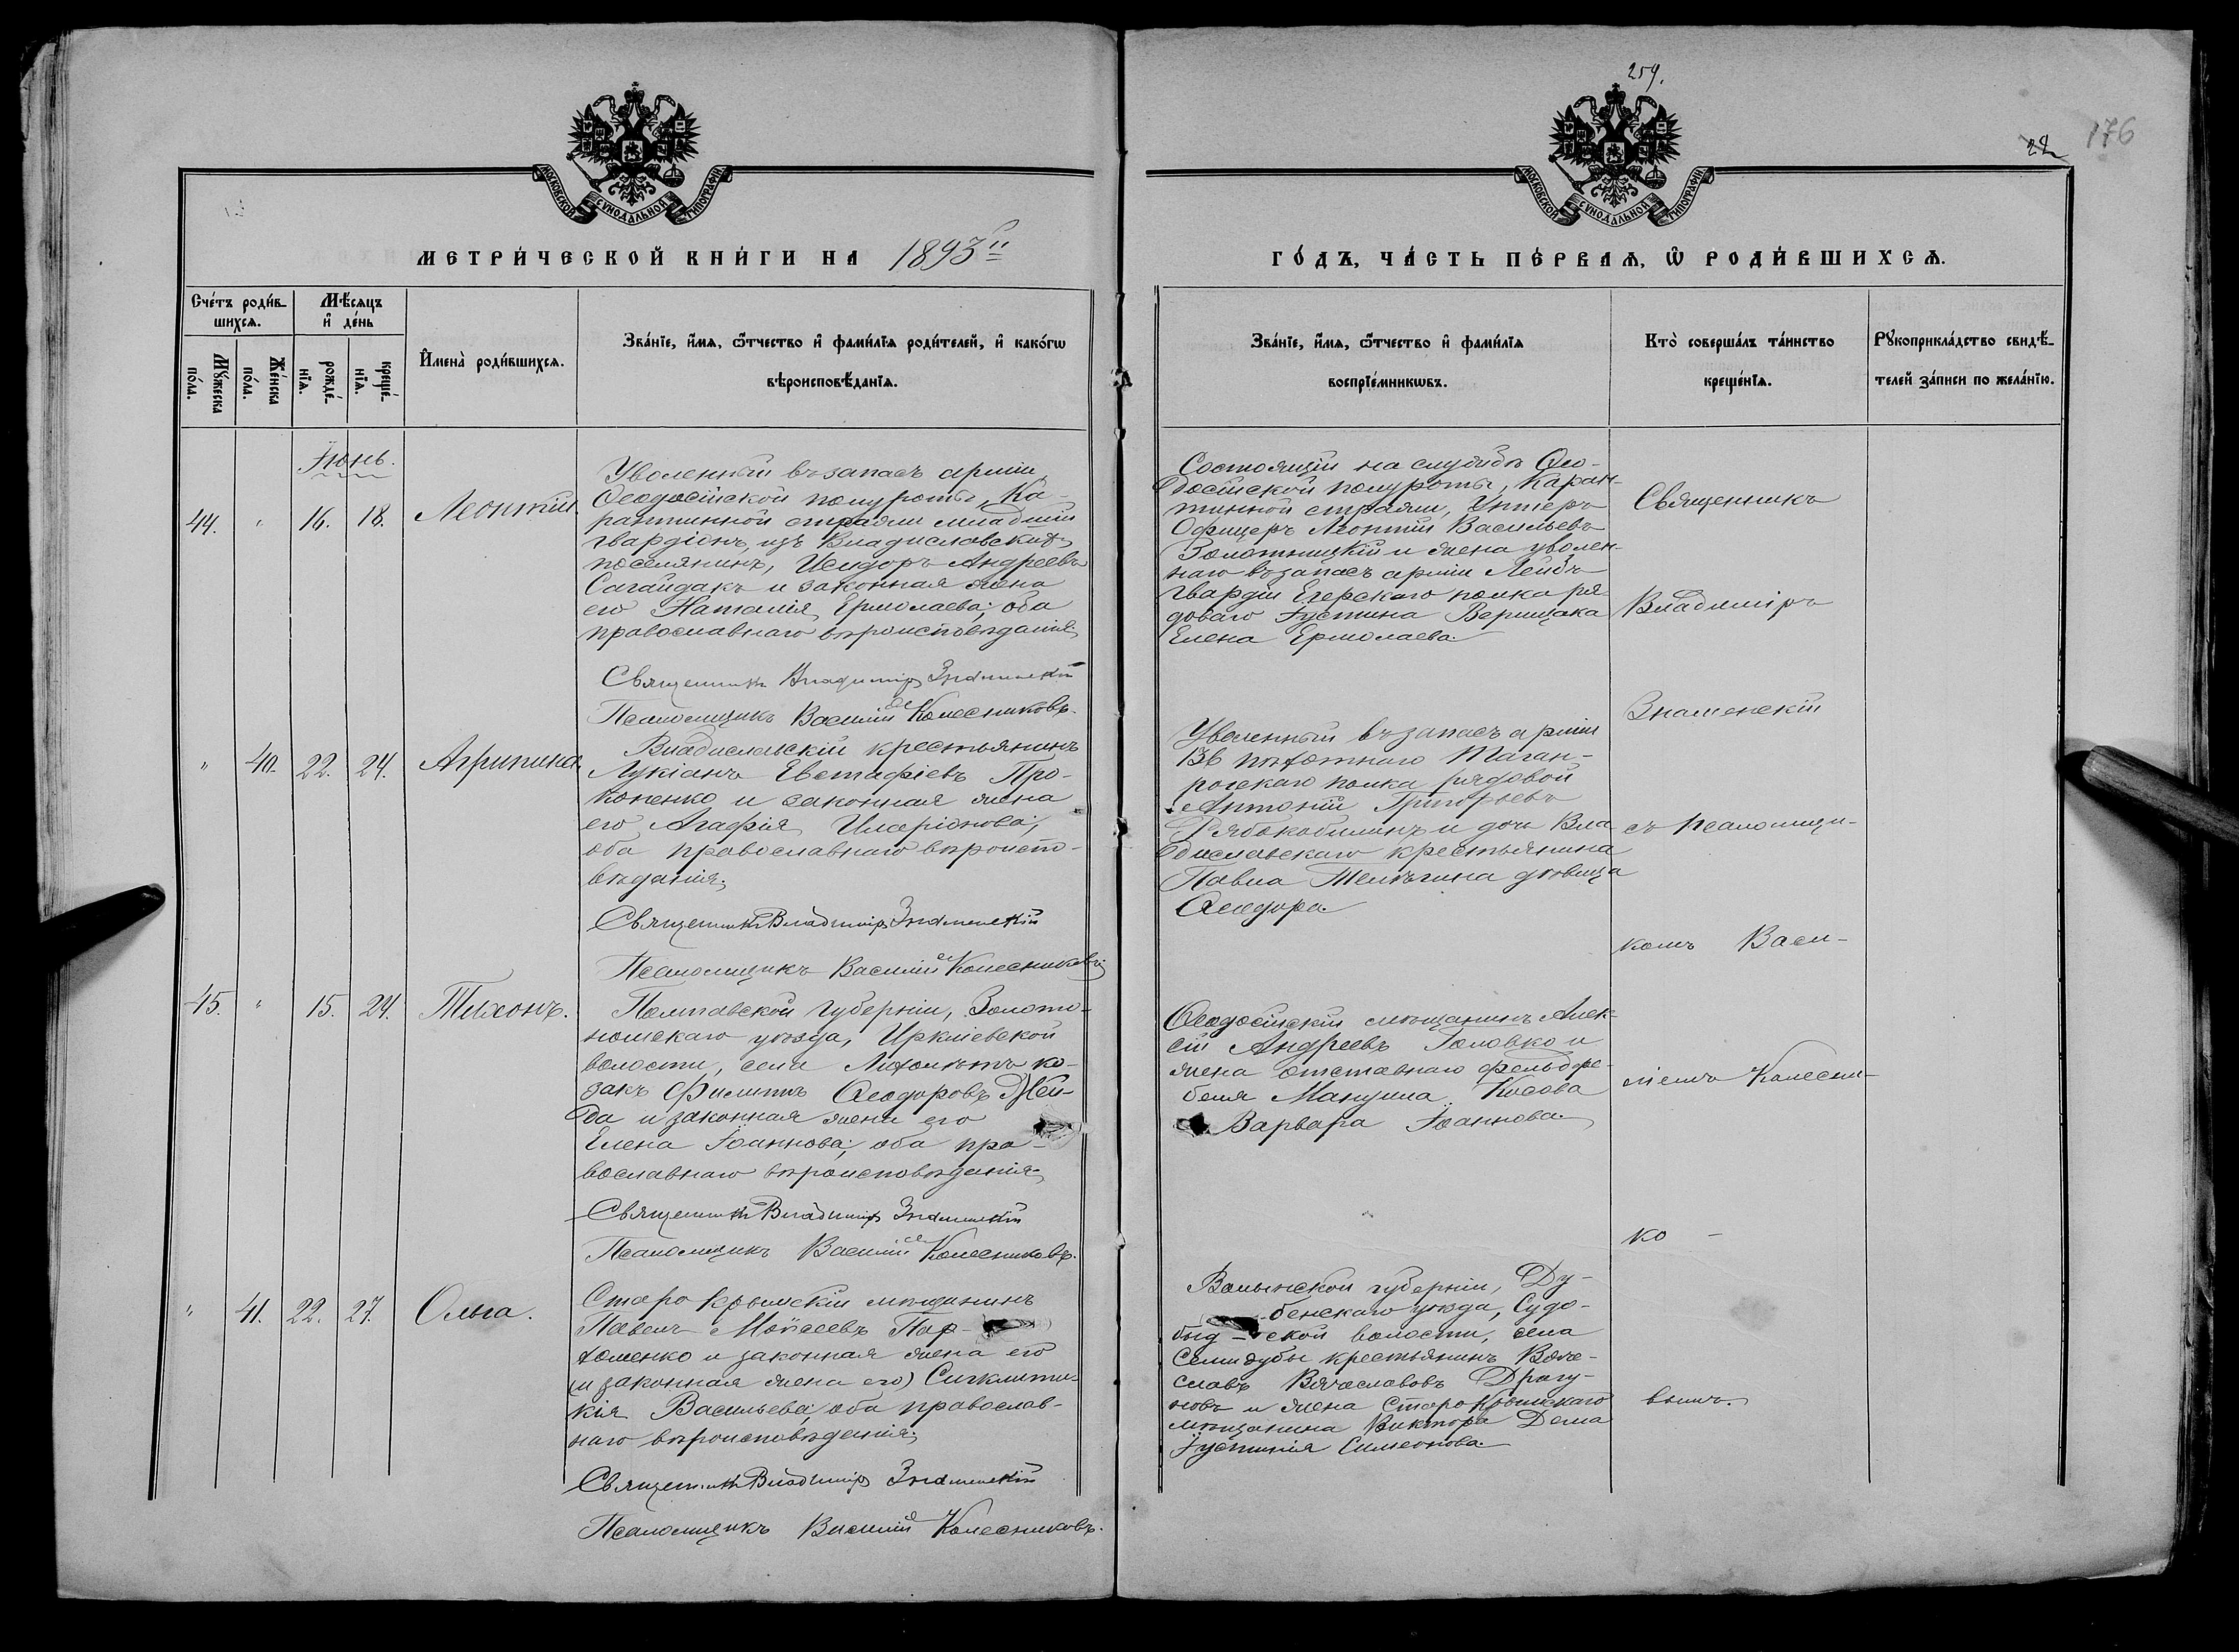 259.
22
176
МОСКОВСКОЙ СѴНОДАЛЬНОЙ ТИПОГРАФІИ
МОСКОВСКОЙ СѴНОДАЛЬНОЙ ТИПОГРАФІИ
МЕТРИ́ЧЕСКОЙ КНИ́ГИ НА 1893й
ГО́ДЪ, ЧА́СТЬ ПЕ́РВАѦ, Ѡ҆ РОДИ́ВШИХСѦ.
Сче́тъ роди́в-
шихсѧ.
Мѣ́сѧцъ
и҆ де́нь
Мꙋ́жеска
по́ла.
Же́нска
по́ла.
рожде́-
нїѧ.
креще́-
нїѧ.
И҆мена̀ роди́вшихсѧ.
Зва́нїе, и҆́мѧ, ѻ҆́тчество и҆ фами́лїѧ роди́телей, и҆ како́гѡ
вѣроисповѣ́данїѧ.
Зва́нїе, и҆́мѧ, ѻ҆́тчество и҆ фами́лїѧ
воспрїе́мникѡвъ.
Кто̀ соверша́лъ та́инство
креще́нїѧ.
Рꙋкоприкла́дство свидѣ́-
телей за́писи по жела́нїю.
Іюнь.
44. " 16. 18. Леонтій.
Уволенный въ запасъ арміи
Ѳеодосійской полуроты, Ка-
рантинной стражи младшій
гвардіонъ, изъ Владиславскихъ
поселянинъ, Исидоръ Андреевъ
Сагайдакъ и законная жена
его Наталія Ермолаева; оба
православнаго вѣроисповѣданія.
Священникъ Владиміръ Знаменскій
Псаломщикъ Василій Колесниковъ.
Состоящій на службѣ Ѳео-
досійской полуроты, Каран-
тинной стражи, Унтеръ
Офицеръ Леонтій Васильевъ
Золотницкій и жена уволен-
наго въ запасъ арміи Лейбъ
Гвардіи Егерскаго полка ря-
доваго Іустина Верищака
Елена Ермолаева.
" 40. 22. 24. Агрипина.
Владиславскій крестьянинъ
Лукіанъ Евстафіевъ Про-
копенко и законная жена
его Агафія Иларіонова;
оба православнаго вѣроиспо-
вѣданія.
Священникъ Владиміръ Знаменскій
Псаломщикъ Василій Колесниковъ
Уволенный въ запасъ арміи
136 пѣхотнаго Таган-
рогскаго полка рядовой
Антоній Григорьевъ
Рябокобилинъ и дочь Вла-
диславскаго крестьянина
Павла Телѣгина дѣвица
Ѳеодора.
45. " 15. 24. Тихонъ.
Полтавской губерніи, Золото-
ношскаго уѣзда, Иркліевской
волости, села Лихолѣтъ ко-
закъ Филиппъ Ѳеодоровъ Жей-
да и законная жена его
Елена Іоаннова; оба пра-
вославнаго вѣроисповѣданія.
Священникъ Владиміръ Знаменскій
Псаломщикъ Василій Колесниковъ.
Ѳеодосійскій мѣщанинъ Алек-
сій Андреевъ Головко и
жена отставнаго фельдфе-
беля Мануила Косова
Варвара Іоаннова.
" 41. 22. 27. Ольга.
Старо Крымскій мѣщанинъ
Павелъ Моѵсеевъ Пар-
хоменко и законная жена его
(и законная жена его) Сигклити-
кія Васильева; оба православ-
наго вѣроисповѣданія.
Священникъ Владиміръ Знаменскій
Псаломщикъ Василій Колесниковъ.
Волынской губерніи, Ду-
бенскаго уѣзда, Судо-
ской волости, села
Семидубы крестьянинъ Вяче-
славъ Вячеславовъ Драгу-
новъ и жена Старо Крымскаго
мѣщанина Виктора Дема
Іустинія Симеонова.
Священникъ
Владиміръ
Знаменскій
съ псаломщи-
комъ Васи-
ліемъ Колесни-
ко-
вымъ.